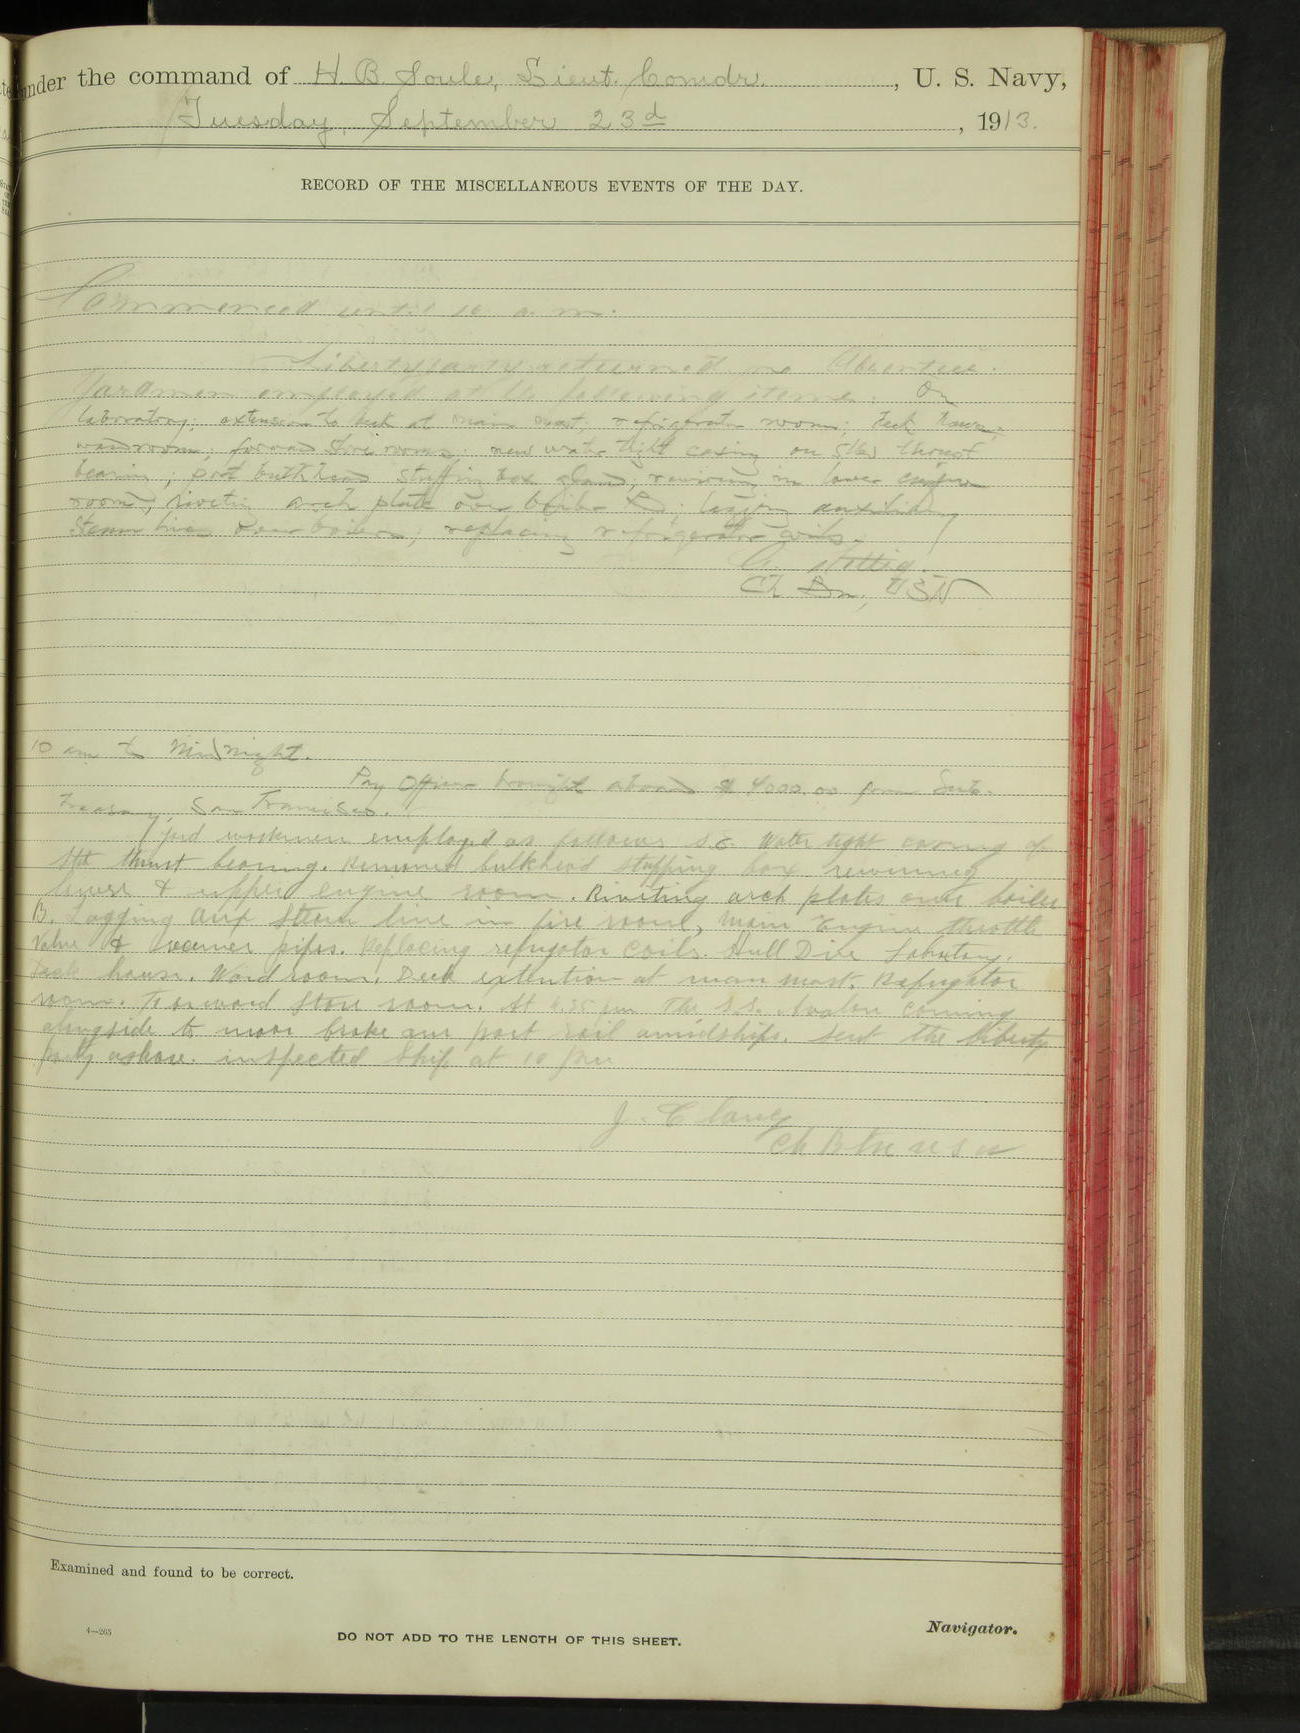 under the command of H. B. Soule, Lieut. Comdr. , U. S. Navy,
Tuesday, September 23d , 1913.
RECORD OF THE MISCELLANEOUS EVENTS OF THE DAY.
Commenced until 10 a. m.
Liberty party returned, no Absentees.
Yardmen employed at the following items: On
laboratory; extension to deck at main mast; refrigerator room; deck house;
wardroom; forward store room; new water tight casing on Stbd thrust
bearing; port bulkhead stuffing box gland; rewiring in lower engine
room; riveting arch plate over boiler B; lagging auxiliary
steam line over boilers; replacing refrigerator coils.
Ch Bn, USN
10 am to Midnight.
Pay Officer brought aboard $ 4000.00 from Sub-
treasury, San Francisco.
Yard workmen employed as follows S.E. Water tight casing of
Stb thrust bearing. Removed bulkhead stuffing box rewiring
lower & upper engine room. Riveting arch plates over boiler
B. Lagging Aux steam line in fire room, Main Engine throttle
valve & pipes. Replacing refrigator coils. Hull Div Labratory.
Deck house. Ward room. Deck extention at main mast. Refrigator
room. Forward store room. At pm The S.S. Avalon coming
alongside to moor broke our port rail amidships. Sent the liberty
party ashore. inspected ship at 10 pm
Ch Btn U S N
Examined and found to be correct.
4—265
DO NOT ADD TO THE LENGTH OF THIS SHEET.
Navigator.